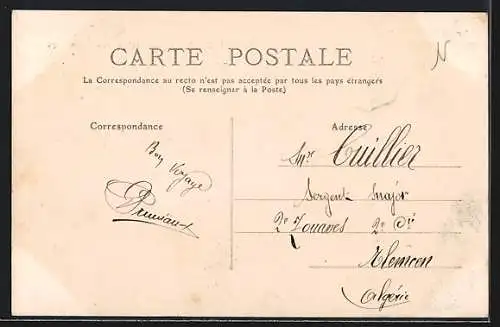 CARTE POSTALE
La Correspondance au recto n'est pas acceptée par tous les pays étrangers
(Se renseigner à la Poste)
Correspondance
Adresse
Bon Voyage
Mr Cuillier
Sergent major
2e Zouaves 2e Cie
Tlemcen
Algérie
N